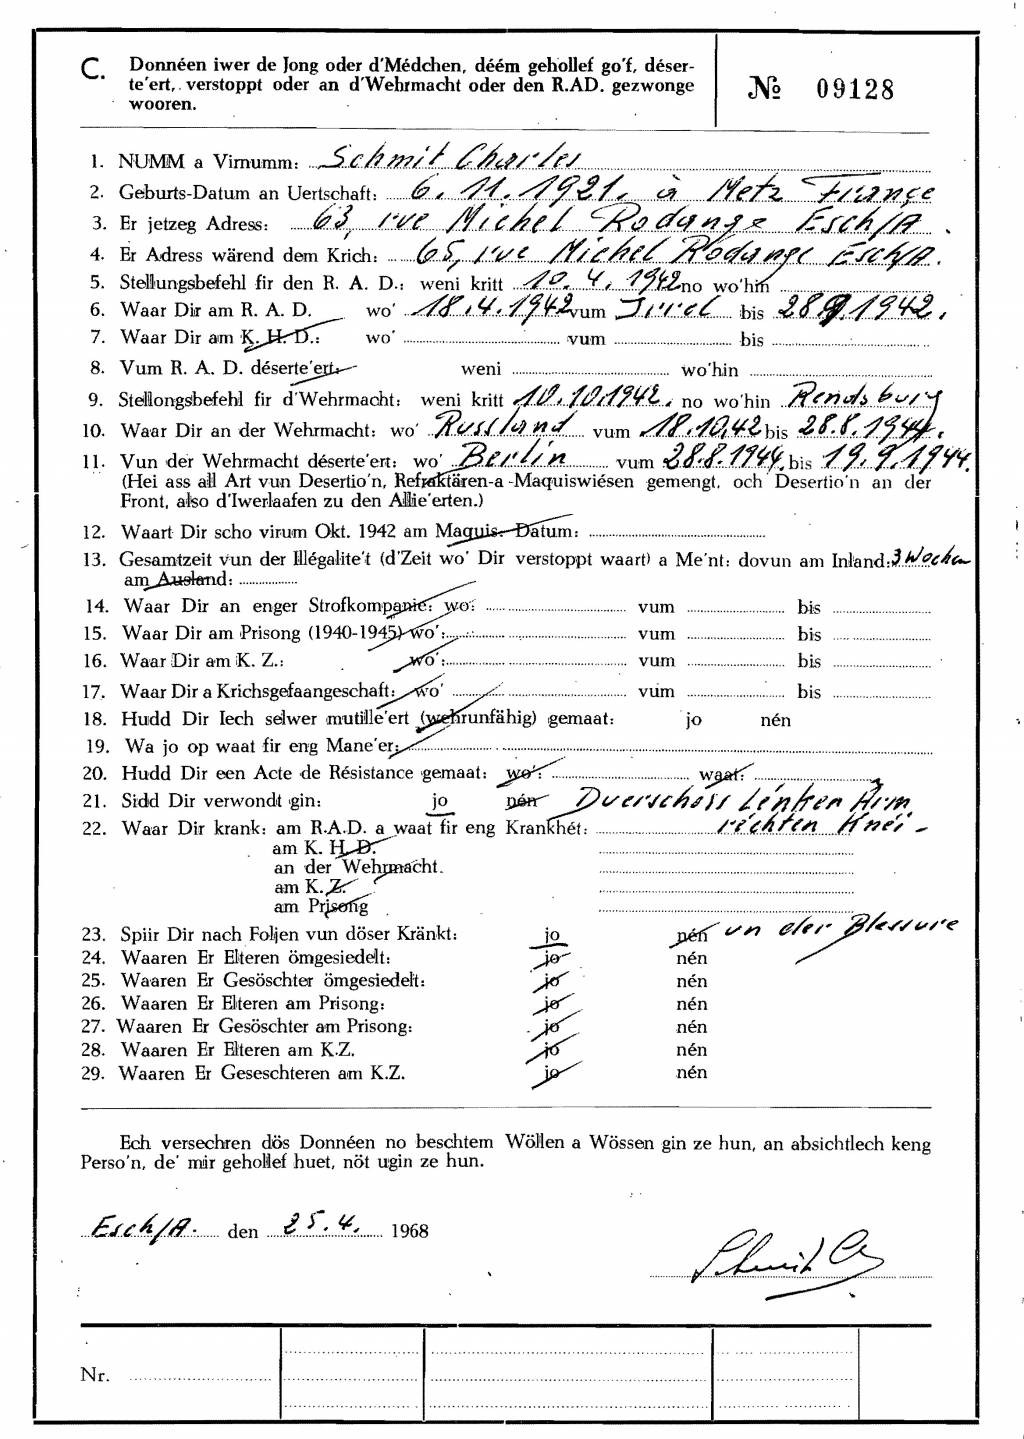 C. Donnéen iwer de Jong oder d'Médchen, déém gehollef go'f, déser-
te'ert, verstoppt oder an d'Wehrmacht oder den R.AD. gezwonge
wooren.
№ 09128
1. NUMM a Virnumm: Schmit Charles
2. Geburts-Datum an Uertschaft: 6.11.1921. à Metz France
3. Er jetzeg Adress: 63, rue Michel Rodange Esch/A.
4. Er Adress wärend dem Krich: 65, rue Michel Rodange Esch/A.
5. Stellungsbefehl fir den R. A. D.: weni kritt 10.4.1942 no wo'hin
6. Waar Dir am R. A. D. wo' 18.4.1942 vum Irrel bis 28.9.1942.
7. Waar Dir am K. H. D.: wo' vum bis
8. Vum R. A. D. déserte'ert: weni wo'hin
9. Stellongsbefehl fir d'Wehrmacht: weni kritt 10.10.1942. no wo'hin Rendsburg
10. Waar Dir an der Wehrmacht: wo' Russland vum 18.10.42 bis 28.8.1944.
11. Vun der Wehrmacht déserte'ert: wo' Berlin vum 28.8.1944. bis 19.9.1944.
(Hei ass all Art vun Desertio'n, Refraktären-a-Maquiswiésen gemengt, och Desertio'n an der
Front, also d'Iwerlaafen zu den Allie'erten.)
12. Waart Dir scho virum Okt. 1942 am Maquis. Datum:
13. Gesamtzeit vun der Illégalite't (d'Zeit wo' Dir verstoppt waart) a Me'nt: dovun am Inland: 3 Wochen
am Ausland:
14. Waar Dir an enger Strofkompanie: wo: vum bis
15. Waar Dir am Prisong (1940-1945) wo': vum bis
16. Waar Dir am K. Z.: wo': vum bis
17. Waar Dir a Krichsgefaangeschaft: wo' vum bis
18. Hudd Dir Iech selwer mutille'ert (wehrunfähig) gemaat: jo nén
19. Wa jo op waat fir eng Mane'er:
20. Hudd Dir een Acte de Résistance gemaat: wo': waat:
21. Sidd Dir verwondt gin: jo nén Duerschoss lenken Arm
22. Waar Dir krank: am R.A.D. a waat fir eng Krankhét: rechten Knéi -
am K. H. D.
an der Wehrmacht.
am K. Z.
am Prisong
23. Spiir Dir nach Foljen vun döser Kränkt: jo nén vn der Blessure
24. Waaren Er Elteren ömgesiedelt: jo nén
25. Waaren Er Gesöschter ömgesiedelt: jo nén
26. Waaren Er Elteren am Prisong: jo nén
27. Waaren Er Gesöschter am Prisong: jo nén
28. Waaren Er Elteren am K.Z. jo nén
29. Waaren Er Geseschteren am K.Z. jo nén
Ech versechren dös Donnéen no beschtem Wöllen a Wössen gin ze hun, an absichtlech keng
Perso'n, de' mir gehollef huet, nöt ugin ze hun.
Esch/A. den 25.4. 1968
Schmit Ch
Nr.